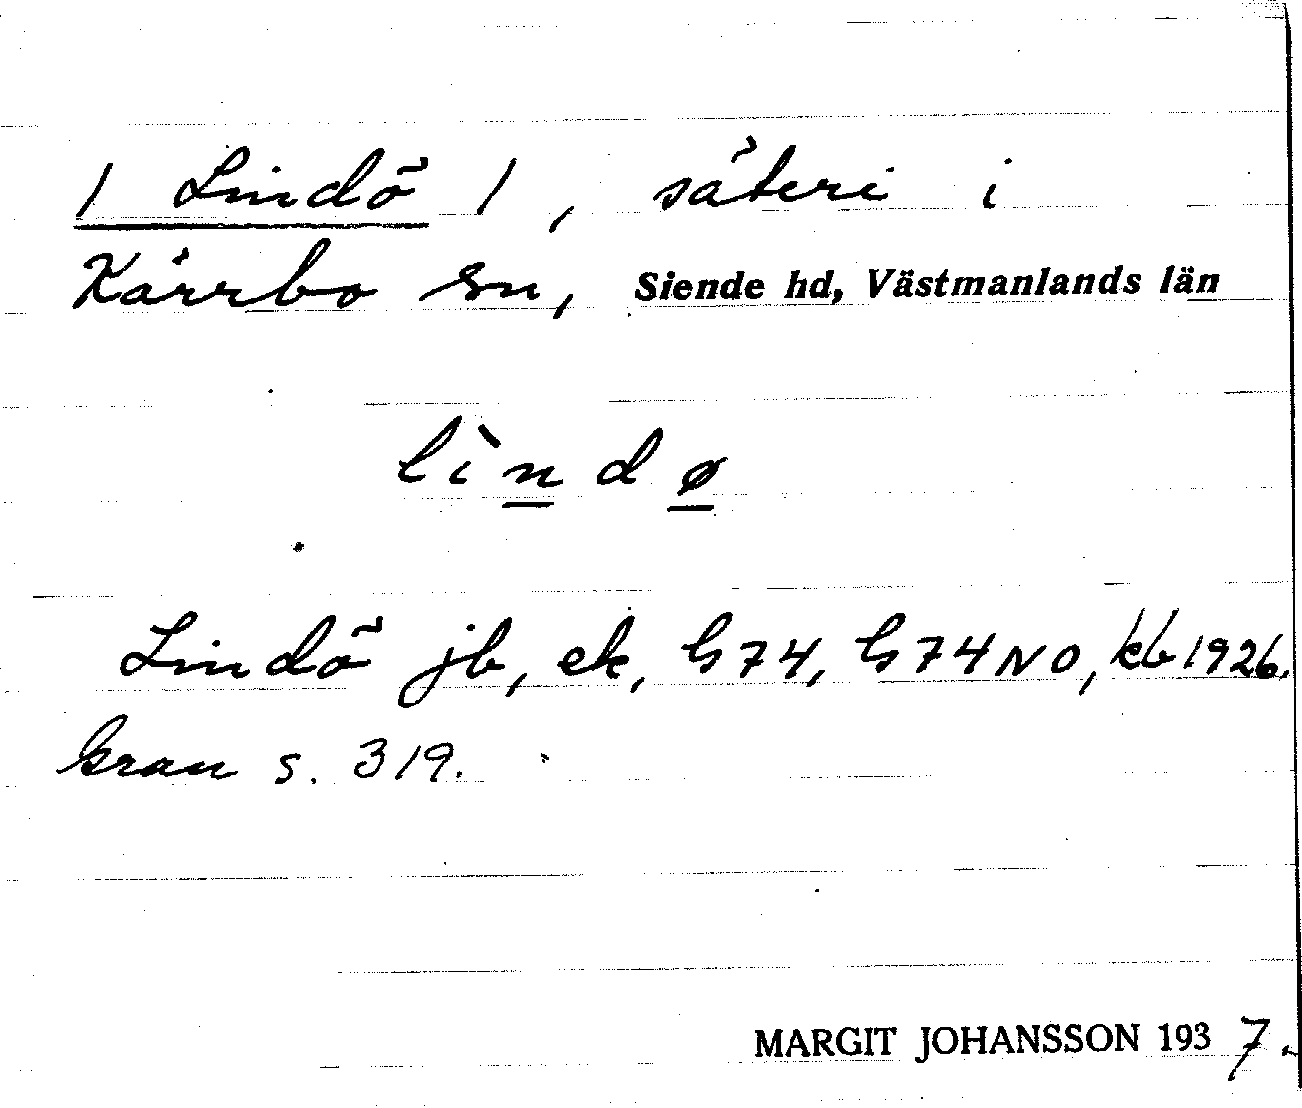 / Lindö /, säteri i
Kärrbo sn, Siende hd, Västmanlands län
lìndø
Lindö jb, ek, G 74, G 74 NO, kb 1926.
Gran s. 319.
MARGIT JOHANSSON 1937.